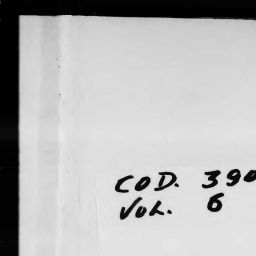 COD. 390
VOL. 6